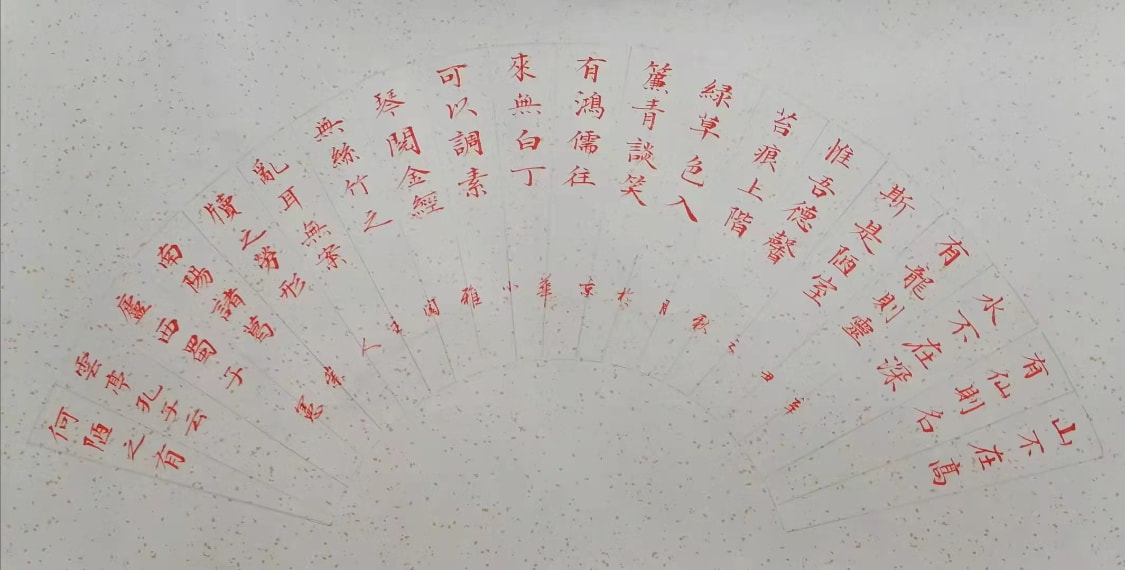 山不在高
有仙則名
水不在深
有龍則靈
斯是陋室
惟吾德馨
苔痕上階
緑草色入
簾青談笑
有鴻儒往
來無白丁
可以調素
琴閱金經
無絲竹之
亂耳無案
牘之勞形
南陽諸葛
廬西蜀子
雲亭孔子云
何陋之有
辛丑之秋月於京華小雅主人